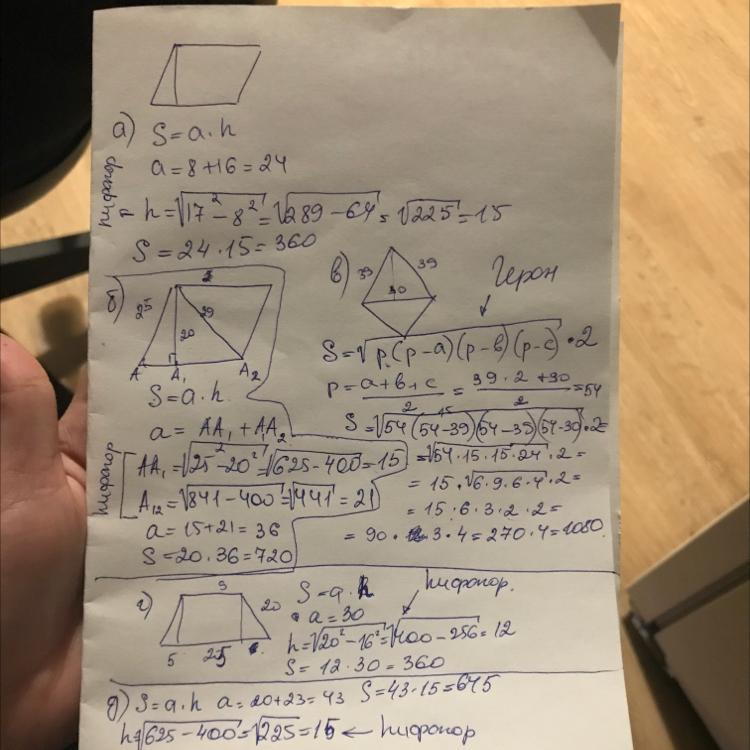 а) S = a · h
a = 8 + 16 = 24
пифагор = h = √(17² − 8²) = √(289 − 64) = √225 = 15
S = 24 · 15 = 360
б)
25 29 20
A A₁ A₂
S = a · h.
a = AA₁ + AA₂
пифагор
AA₁ = √(25² − 20²) = √(625 − 400) = 15
A₁₂ = √(841 − 400) = √441 = 21
a = 15 + 21 = 36
S = 20 · 36 = 720
в) 39 39 30
Герон
S = √(p · (p − a)(p − в)(p − c)) · 2
P = (a + в + c)/2 = (39 · 2 + 30)/2 = 54
S = √(54(54 − 39)(54 − 39)(54 − 30)) · 2 =
= √(54 · 15 · 15 · 24) · 2 =
= 15 · √(6 · 9 · 6 · 4) · 2 =
= 15 · 6 · 3 · 2 · 2 =
= 90 · 3 · 4 = 270 · 4 = 1080.
г) 20
5 25
S = a · h
a = 30
пифагор.
h = √(20² − 16²) = √(400 − 256) = 12
S = 12 · 30 = 360
д) S = a · h a = 20 + 23 = 43 S = 43 · 15 = 645
h = √(625 − 400) = √225 = 15 ← пифагор